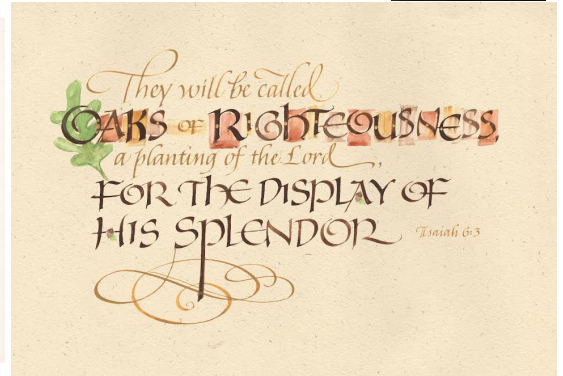 They will be called
OAKS OF RIGHTEOUSNESS,
a planting of the Lord,
FOR THE DISPLAY OF
HIS SPLENDOR Isaiah 6:3